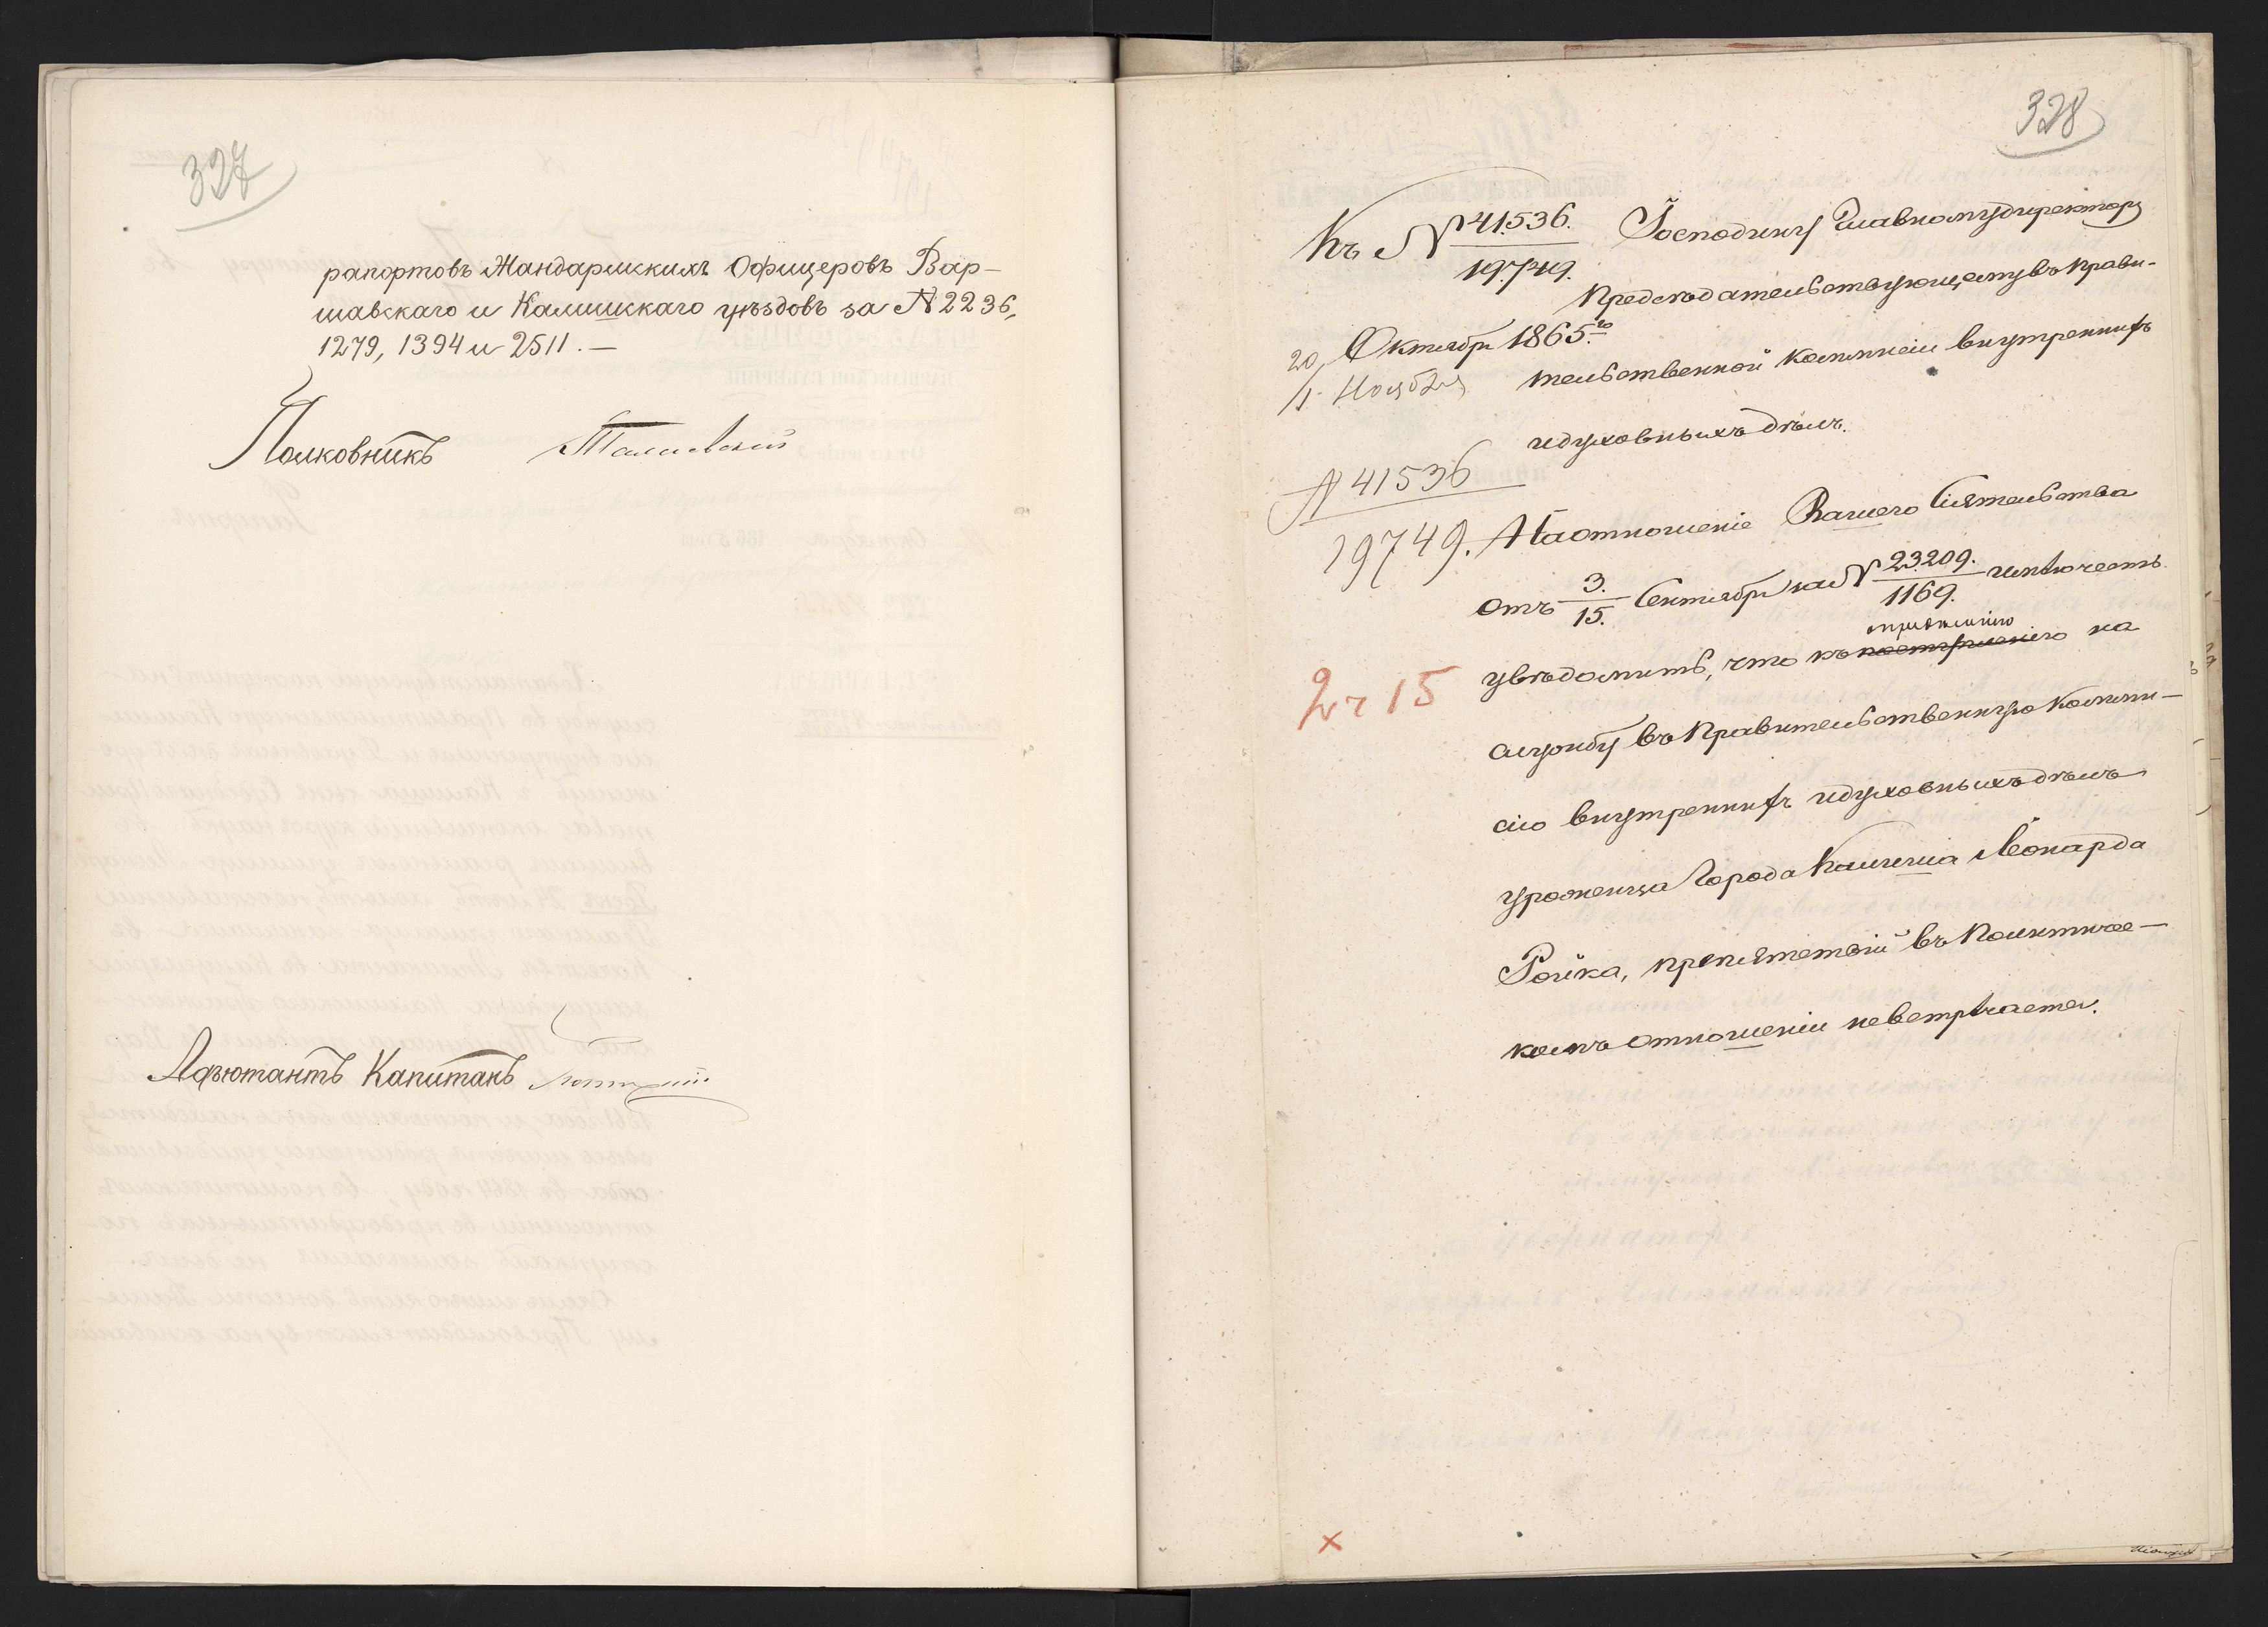 327
рапортовъ Жандармскихъ Офицеровъ Вар-
шавскаго и Калишскаго уѣздовъ за № 2236,
1279, 1394 и 2511. —
Полковникъ
Адъютантъ Капитанъ
328
Къ № 41536. / 19749.
Господину Главному Директору
Предсѣдательствующему въ Прави-
20 Октября 1865 го
/1 Ноября
тельственной Коммисіи Внутреннихъ
и Духовныхъ дѣлъ.
№ 41536
19749.
На отношеніе Вашего Сіятельства
отъ 3./15. Сентября за № 23209./1169. имѣю честь
опредѣленію
увѣдомить, что къ поступленію на
службу въ Правительственную Комми-
сію внутреннихъ и духовныхъ дѣлъ
уроженца Города Калиша Леонарда
Ройка, препятствій въ Политичес-
комъ отношеніи не встрѣчается.
2 ч 15